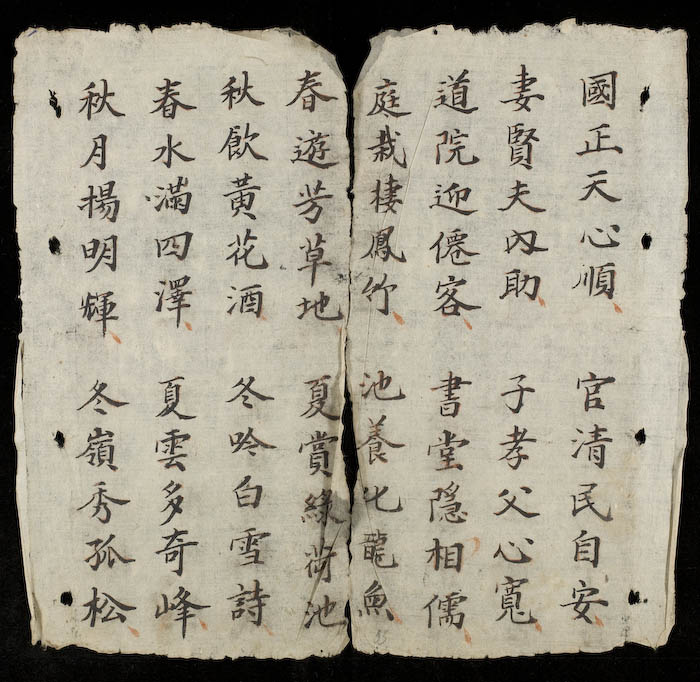 國正天心順 官清民自安
妻賢夫內助 子孝父心寬
道院迎僊客 書堂隱相儒
庭栽棲鳳竹 池養匕龍魚
春遊芳草地 夏賞綠荷池
秋飲黃花酒 冬吟白雪詩
春水滿四澤 夏雲多奇峰
秋月揚明輝 冬嶺秀孤松